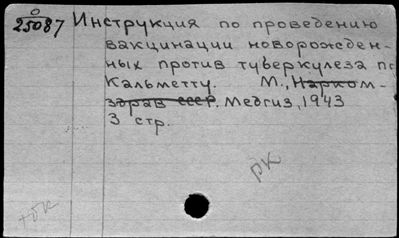 0
25087 Инструкция по проведению
вакцинации новорожден-
ных против туберкулеза по
Кальметту. М., Нарком-
здрав СССР. Медгиз, 1943
3 стр.
РК